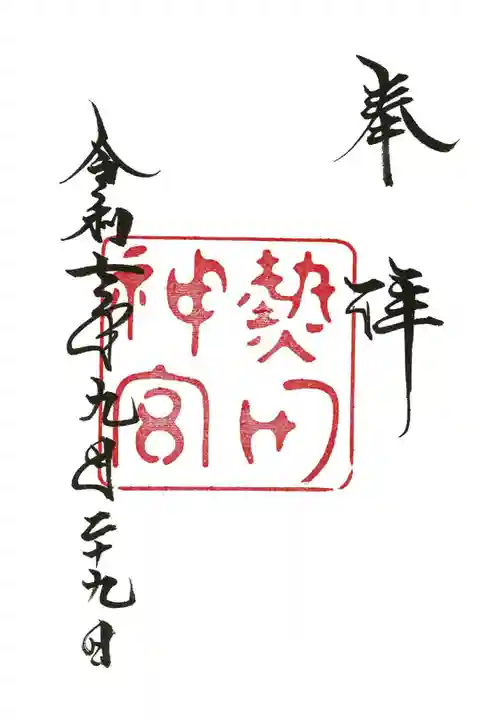 奉拝
熱田
神宮
令和七年九月二十九日